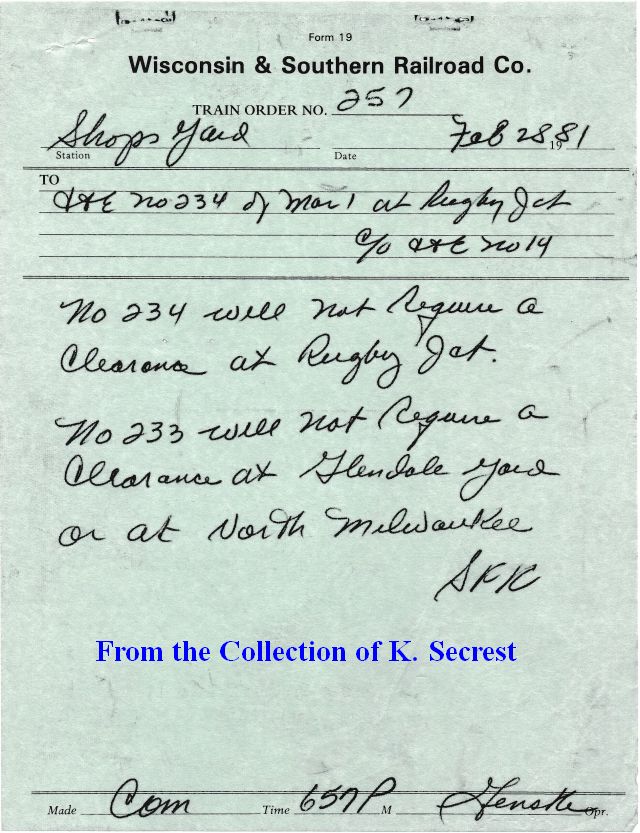 Form 19
Wisconsin & Southern Railroad Co.
TRAIN ORDER NO. 257
Shops Yard Feb 28 1981
Station Date
TO
C&E No 234 of Mar 1 at Rugby Jct
C/o C&E No 14
No 234 will not require a
Clearance at Rugby Jct.
No 233 will not require a
Clearance at Glendale Yard
or at North Milwaukee
SKK
From the Collection of K. Secrest
Made Com Time 657P M Opr.